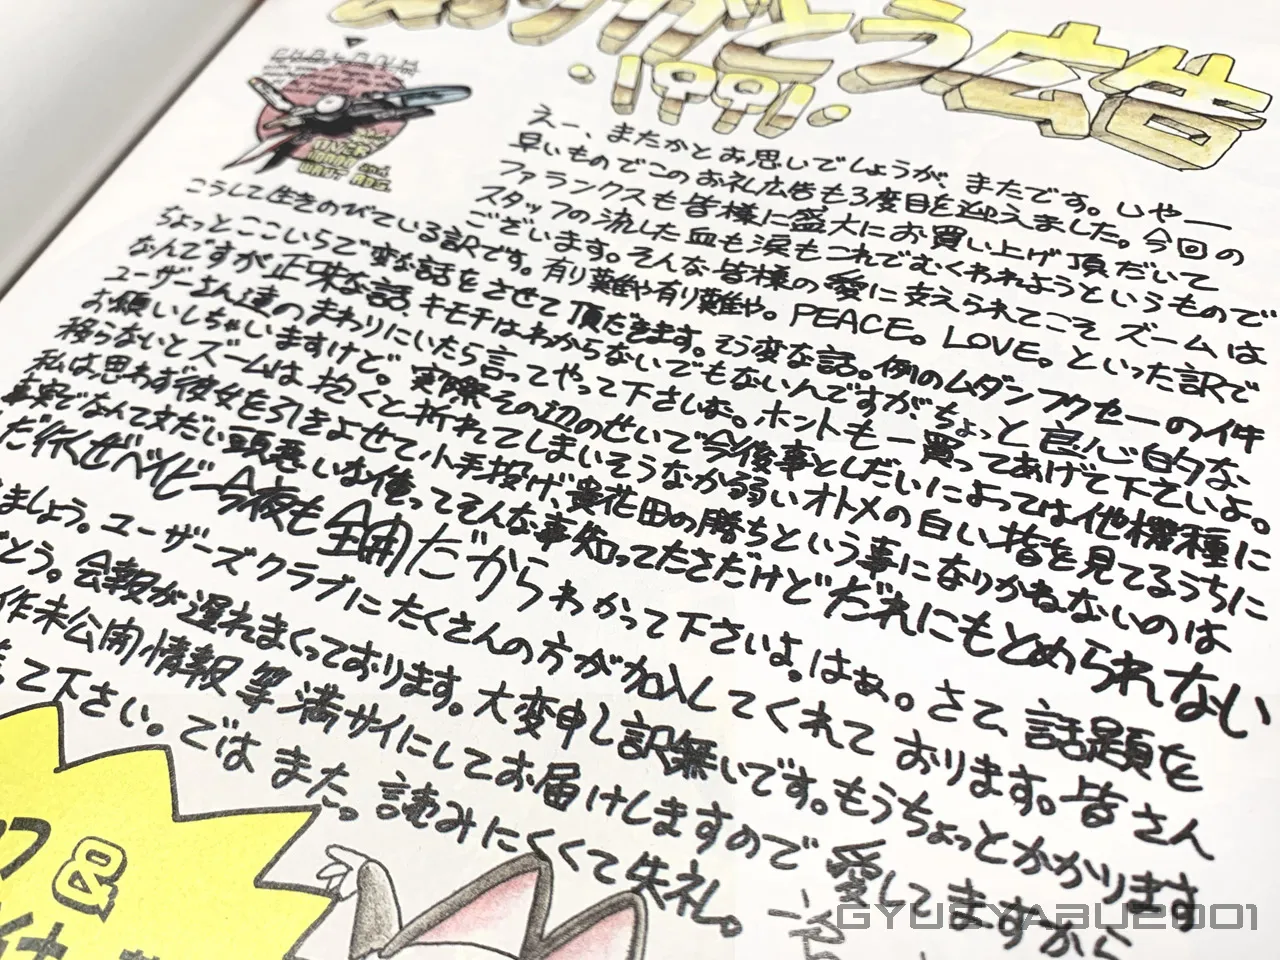 ありがとう広告
・1991・
えー、またかとお思いでしょうが、またです。しゃー
早いものでこのお礼広告も3度目を迎えました。今回の
ファランクスも皆様に盛大にお買い上げ頂だいて
スタッフの流した血も涙もこれでむくわれようというもので
ございます。そんな皆様の愛に支えられてこそズームは
こうして生きのびている訳です。有り難や有り難や。PEACE。LOVE。といった訳で
ちょっとここいらで変な話をさせて頂だきます。そう変な話。例のムダンフクセーの件
なんですが正味な話、キモチはわからないでもないんですがちょっと良心的な
ユーザーさん達のまわりにいたら言ってやって下さいな。ホントも一買ってあげて下さいよ。
お願いしちゃいますけど。実際その辺のせいで今後事としだいによっては他機種に
移らないとズームは抱くと折れてしまいそうなか弱いオトメの白い指を見てるうちに
私は思わず彼女を引きよせて小手投げ、貴花田の勝ちという事になりかねないのは
事実でなんて文だい頭悪いな俺ってそんな事知ってたさだけどだれにもとめられない
だ行くぜベイビー今夜も全開だからわかって下さいよ。はぁ。さて、話題を
ましょう。ユーザーズクラブにたくさんの方が加入してくれております。皆さん
どう。会報が遅れまくっております。大変申し訳無いです。もうちょっとかかります
作未公開情報等満サイにしてお届けしますので愛してますから
て下さい。ではまたっ。読みにくくて失礼。
&
GYUSYABU2001